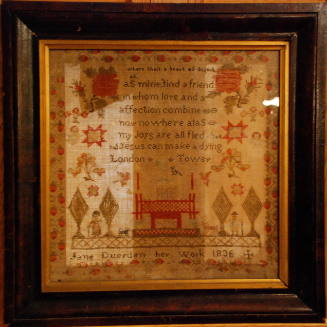 where shall a heart so deject
as mine find a friend
in whom love and a
affection combine
now no where alas
my Joys are all fled
Jesus can make a dying
London Tower
Jane Duerden her Work 1836